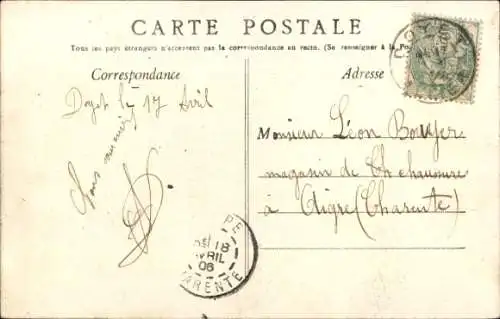 CARTE POSTALE
Tous les pays étrangers n'acceptent pas la correspondance au recto. (Se renseigner à la Po
Correspondance
Adresse
Doyet le 17 Avril
Monsieur Léon Bouyer
magasin de Chaussure
à Aigre (Charente)
18
AVRIL
06
CHARENTE